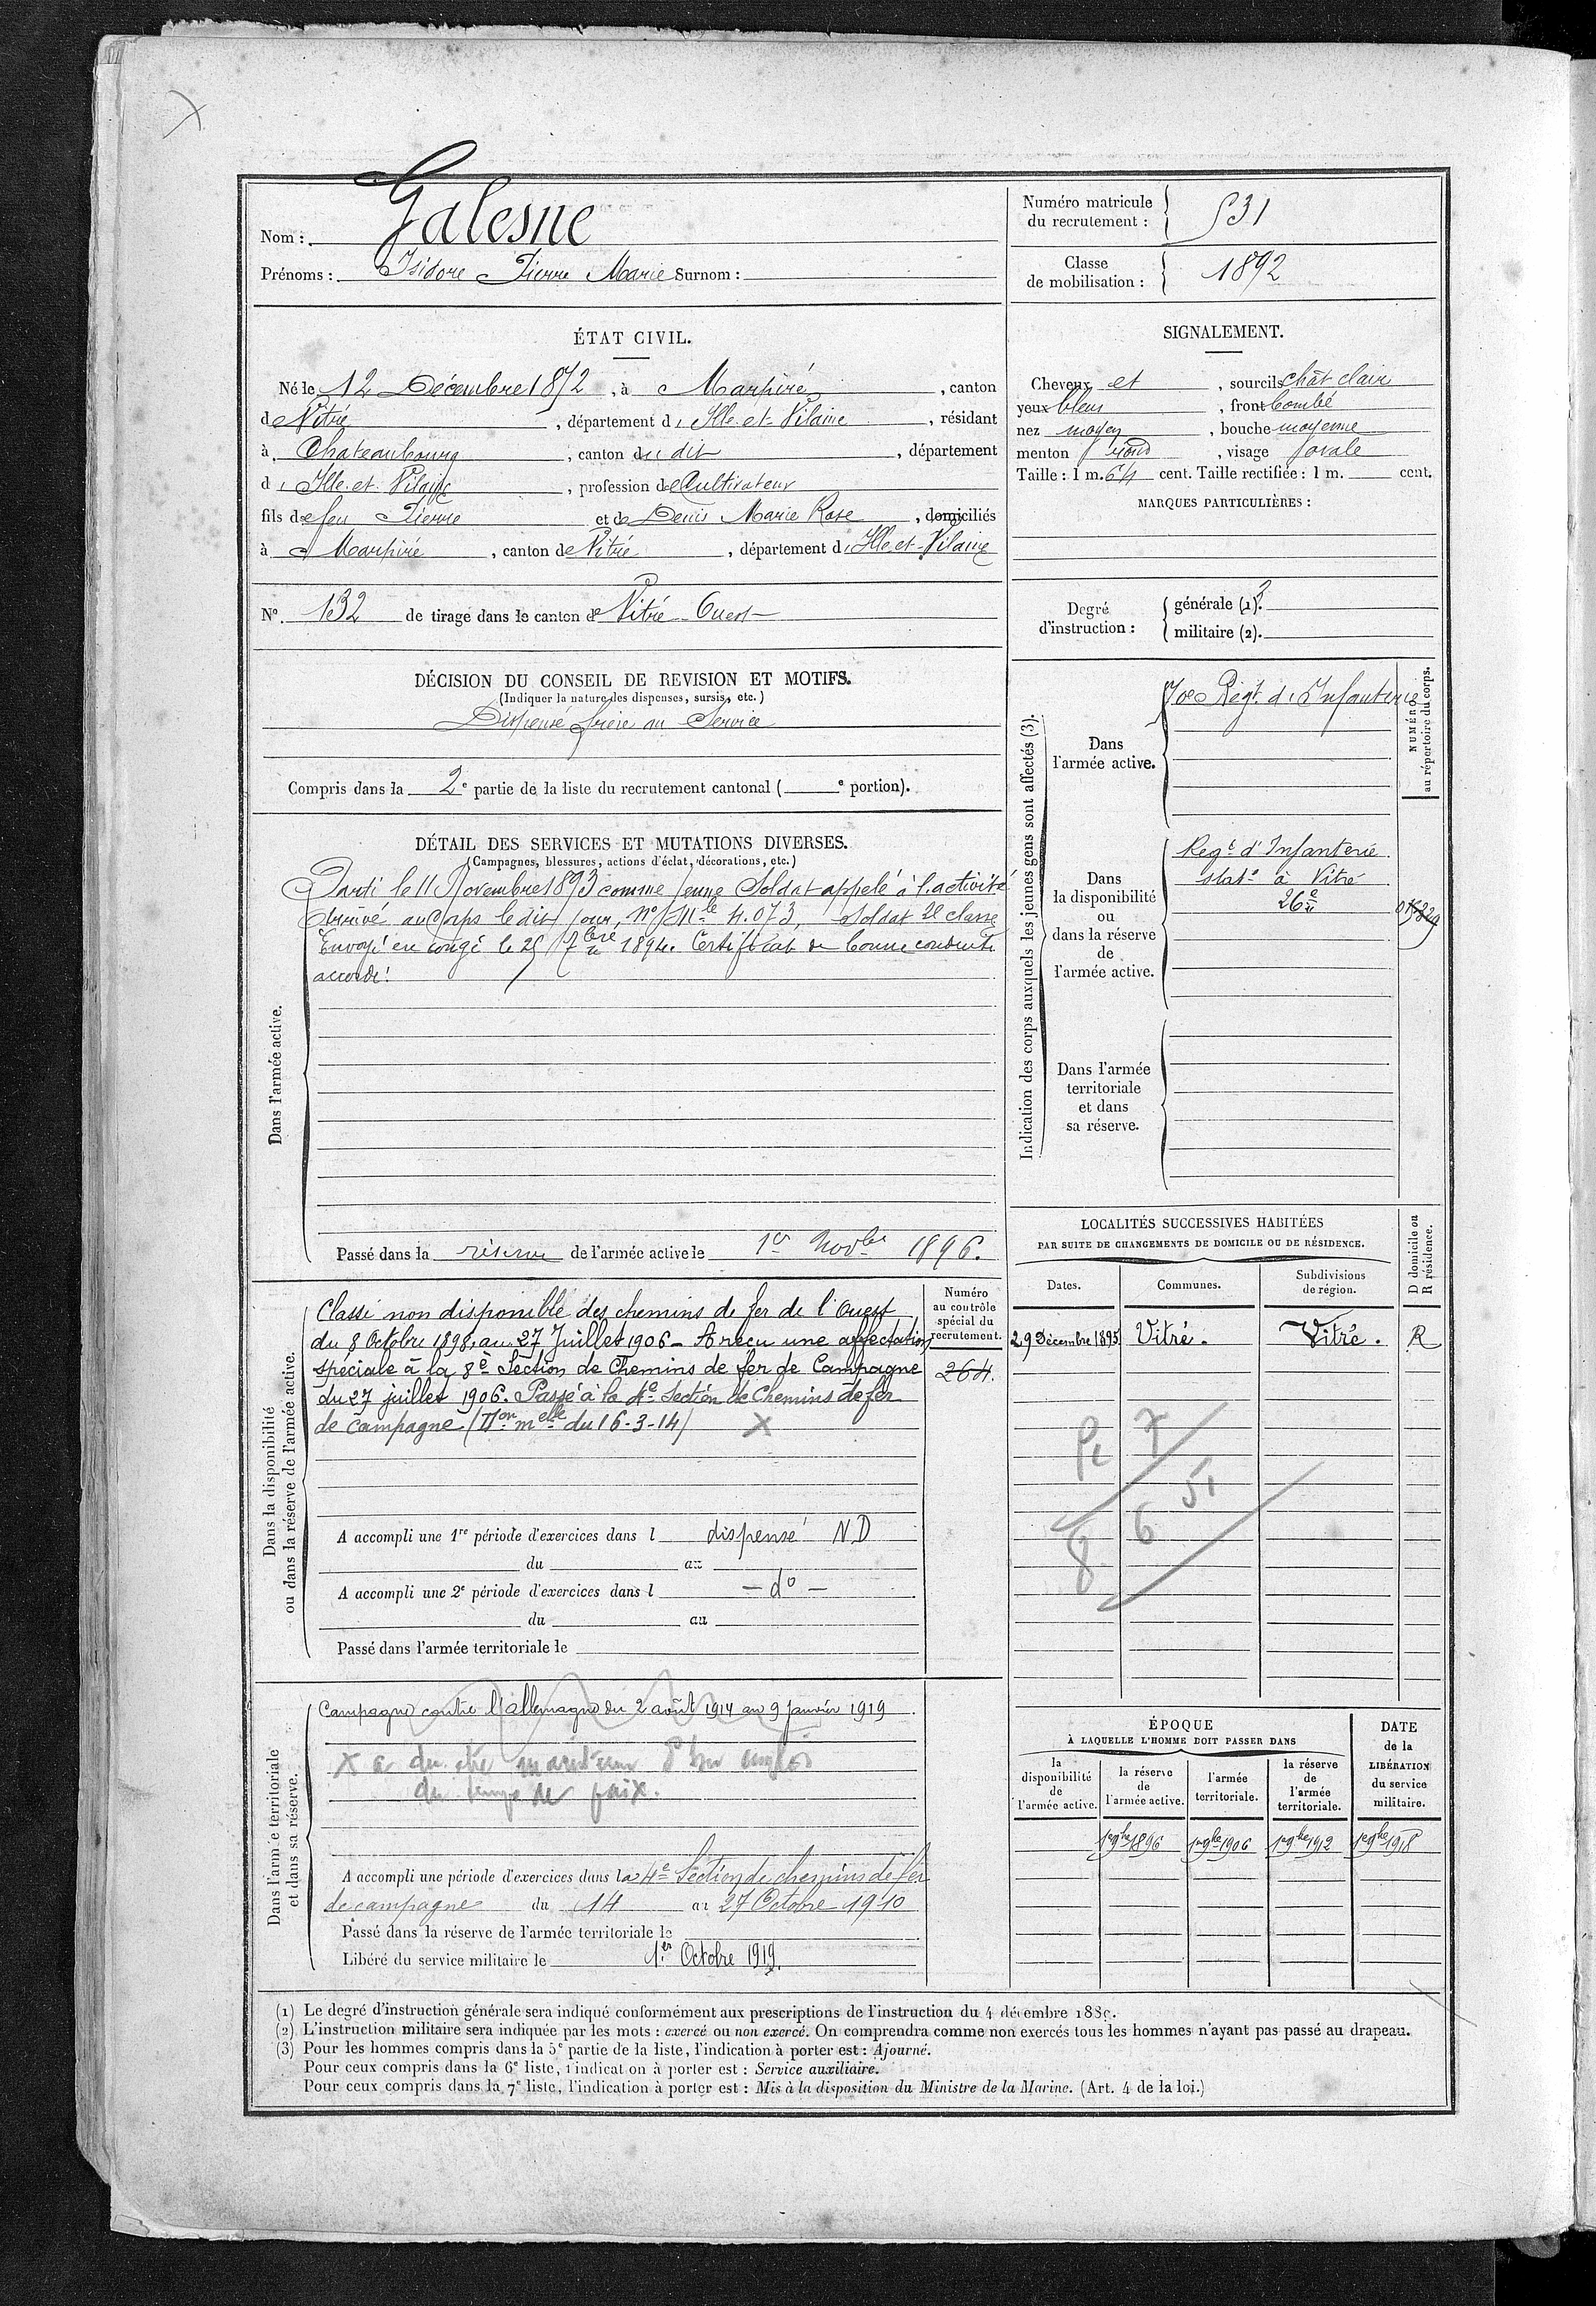 Nom : Galesne
Prénoms : Isidore Pierre Marie Surnom :
Numéro matricule du recrutement : 531
Classe de mobilisation : 1892
ÉTAT CIVIL.
Né le 12 Décembre 1872, à Marpiré, canton
de Vitré, département d'Ille-et-Vilaine, résidant
à Chateaubourg, canton du dit, département
d'Ille-et-Vilaine, profession de Cultivateur
fils de feu Pierre et de Denis Marie Rose, domiciliés
à Marpiré, canton de Vitré, département d'Ille-et-Vilaine
N° 132 de tirage dans le canton de Vitré Ouest
SIGNALEMENT.
Cheveux et, sourcils chât clair
yeux bleus, front bombé
nez moyen, bouche moyenne
menton rond, visage ovale
Taille : 1 m. 64 cent. Taille rectifiée : 1 m. cent.
MARQUES PARTICULIÈRES :
Degré d'instruction : générale (1). 3
militaire (2).
DÉCISION DU CONSEIL DE REVISION ET MOTIFS.
(Indiquer la nature des dispenses, sursis, etc.)
Dispensé frère au Service
Compris dans la 2e partie de la liste du recrutement cantonal ( e portion).
DÉTAIL DES SERVICES ET MUTATIONS DIVERSES.
(Campagnes, blessures, actions d'éclat, décorations, etc.)
Dans l'armée active.
Parti le 11 Novembre 1893 comme jeune Soldat appelé à l'activité
Arrivé au Corps le dit jour, No Mle 4.073, Soldat 2e classe
Envoyé en congé le 25 7bre 1894. Certificat de bonne conduite
accordé.
Passé dans la réserve de l'armée active le 1er Novbre 1896.
Indication des corps auxquels les jeunes gens sont affectés (3).
NUMÉRO au répertoire du corps.
Dans l'armée active.
70e Régt d'Infanterie
Dans la disponibilité ou dans la réserve de l'armée active.
Regt d'Infanterie
statné à Vitré
26e
Dans l'armée territoriale et dans sa réserve.
LOCALITÉS SUCCESSIVES HABITÉES
PAR SUITE DE CHANGEMENTS DE DOMICILE OU DE RÉSIDENCE.
D domicile ou R résidence.
Dates. Communes. Subdivisions de région.
29 Décembre 1895 Vitré. Vitré. R
Dans la disponibilité ou dans la réserve de l'armée active.
Numéro au contrôle spécial du recrutement.
264.
Classé non disponible des chemins de fer de l'Ouest
du 8 Octobre 1898, au 27 Juillet 1906 - A reçu une affectation
spéciale à la 8e Section de Chemins de fer de Campagne
du 27 juillet 1906. Passé à la 4e Section de Chemins de fer
de campagne (Don melle du 16-3-14) X
A accompli une 1re période d'exercices dans l dispensé ND
du au
A accompli une 2e période d'exercices dans l - do -
du au
Passé dans l'armée territoriale le
Dans l'armée territoriale et dans sa réserve.
Campagne contre l'allemagne du 2 août 1914 au 9 Janvier 1919
X a du être maintenu d son emploi
du temps de paix.
A accompli une période d'exercices dans la 4e Section de chemins de fer
de campagne du 14 au 27 Octobre 1910
Passé dans la réserve de l'armée territoriale le
Libéré du service militaire le 1er Octobre 1919.
ÉPOQUE
À LAQUELLE L'HOMME DOIT PASSER DANS
la disponibilité de l'armée active. la réserve de l'armée active. l'armée territoriale. la réserve de l'armée territoriale.
DATE de la LIBÉRATION du service militaire.
1er 9bre 1896 1er 9bre 1906 1er 9bre 1912 1er 9bre 1918
(1) Le degré d'instruction générale sera indiqué conformément aux prescriptions de l'instruction du 4 décembre 1889.
(2) L'instruction militaire sera indiquée par les mots : exercé ou non exercé. On comprendra comme non exercés tous les hommes n'ayant pas passé au drapeau.
(3) Pour les hommes compris dans la 5e partie de la liste, l'indication à porter est : Ajourné.
Pour ceux compris dans la 6e liste, l'indication à porter est : Service auxiliaire.
Pour ceux compris dans la 7e liste, l'indication à porter est : Mis à la disposition du Ministre de la Marine. (Art. 4 de la loi.)